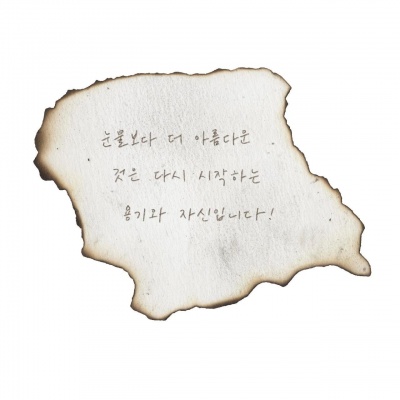 눈물보다 더 아름다운
것은 다시 시작하는
용기와 자신입니다!